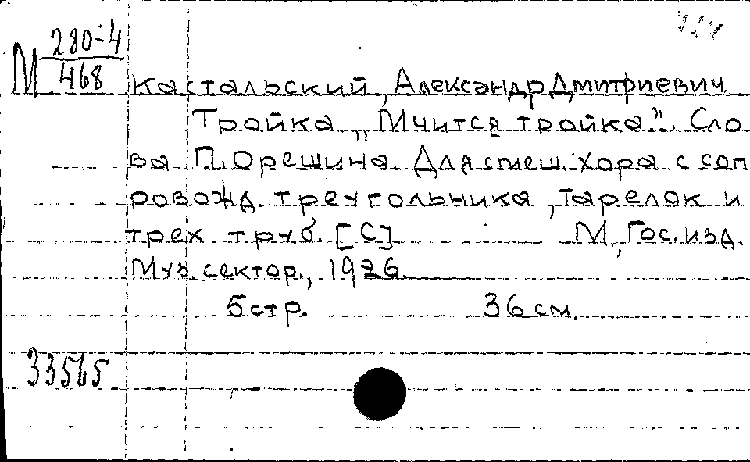 М 280-4
468
Кастальский, Александр Дмитриевич
Тройка „Мчится тройка". Сло
ва П. Орешина. Для смеш. хора с соп
ровожд. треугольника, тарелок и
трех труб. [С] М, Гос. изд.
Муз. сектор, 1926
5 стр. 36 см.
33565